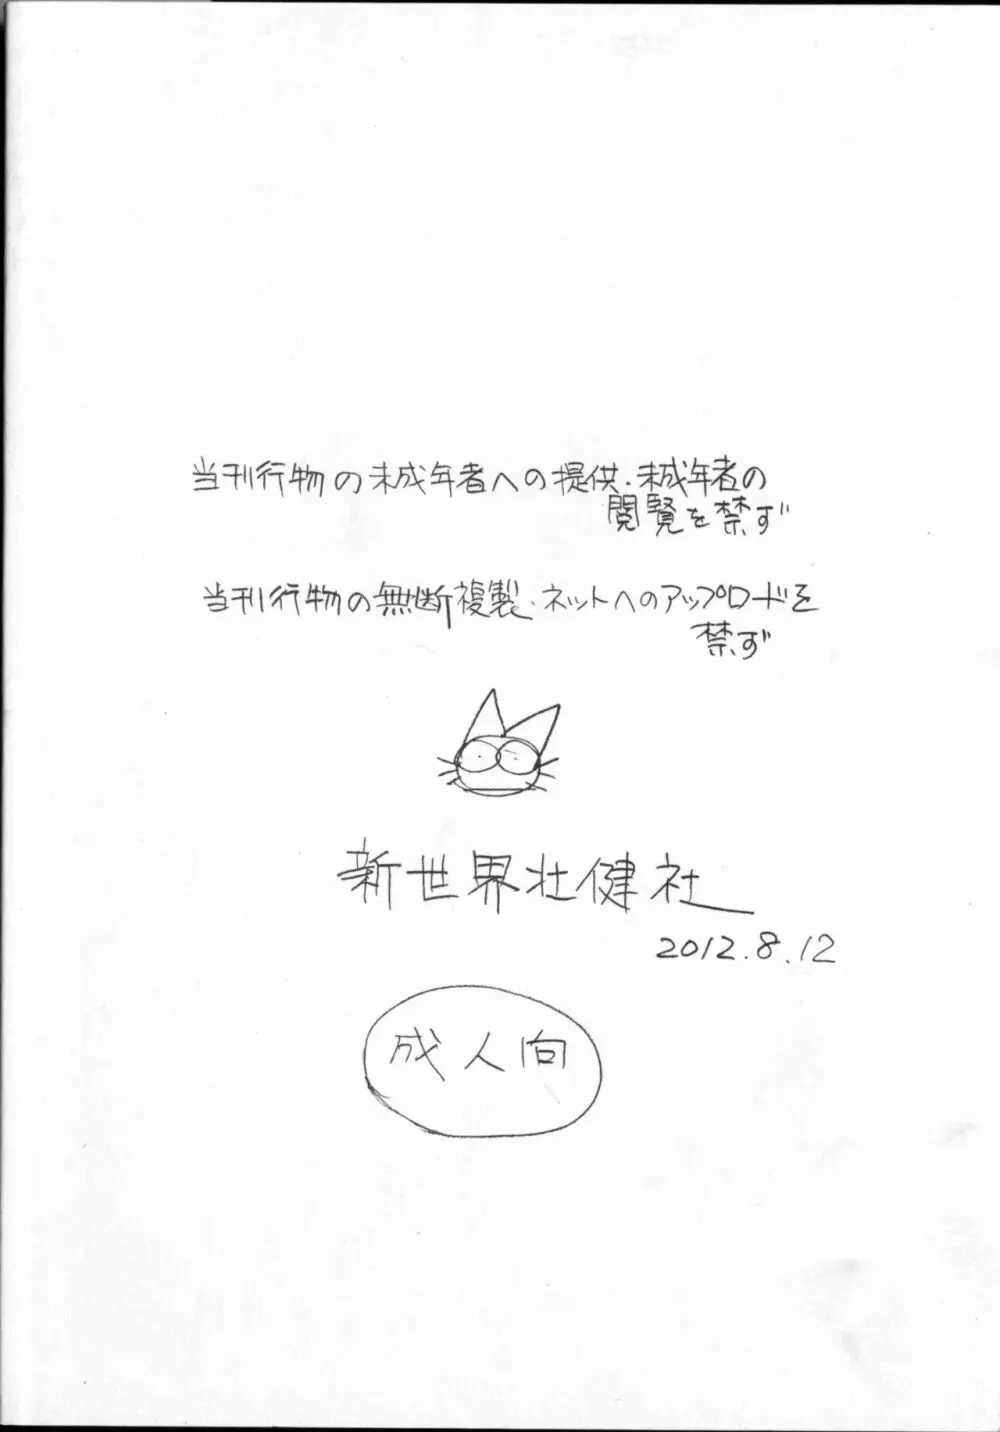 当刊行物の未成年者への提供・未成年者の
閲覧を禁ず
当刊行物の無断複製・ネットへのアップロードを
禁ず
新世界壮健社
2012.8.12
成人向